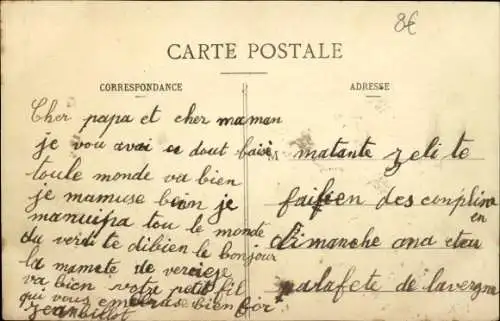 8€
CARTE POSTALE
CORRESPONDANCE
ADRESSE
Cher papa et cher maman
je vou avai e dout baisé
toule monde va bien
je mamuse bien je
manuipa tou le monde
du verdi te dibien le bonjour
la mamete de verciege
va bien votre petit fil
qui vous embrasse bien for
jeanbillot
matante zelite
faibien des complin
en
dimanche ana eteu
alafete de lavergne